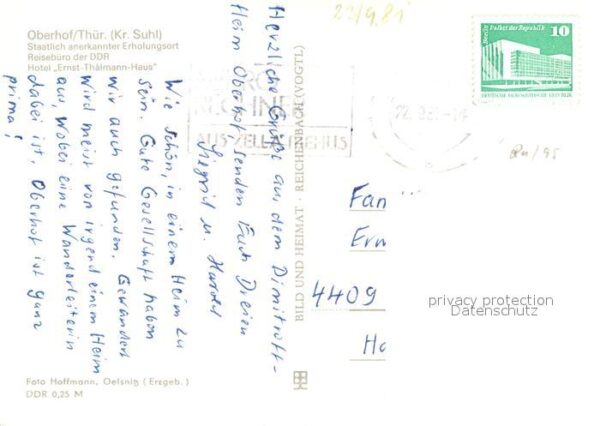 Oberhof/Thür. (Kr. Suhl)
Staatlich anerkannter Erholungsort
Reisebüro der DDR
Hotel „Ernst-Thälmann-Haus"
22/9.81
Berlin Palast der Republik
10
DEUTSCHE DEMOKRATISCHE REPUBLIK
AUS ZELLA-MEHLIS
Herzliche Grüße aus dem Dimitroff-
Heim Oberhof senden Euch Dreien
Siegrid u. Harald
Wie schön, in einem Heim zu
sein. Gute Gesellschaft haben
wir auch gefunden. Gewandert
wird meist von irgend einem Heim
aus, wobei eine Wanderleiterin
dabei ist. Oberhof ist ganz
prima!
BILD UND HEIMAT · REICHENBACH (VOGTL)
Fan
Erw
4409
Ho
privacy protection
Datenschutz
Foto Hoffmann, Oelsnitz (Erzgeb.)
DDR 0,25 M